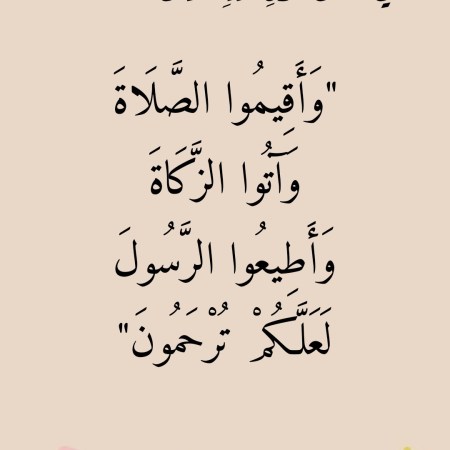 "وَأَقِيمُوا الصَّلَاةَ
وَآتُوا الزَّكَاةَ
وَأَطِيعُوا الرَّسُولَ
لَعَلَّكُمْ تُرْحَمُونَ"